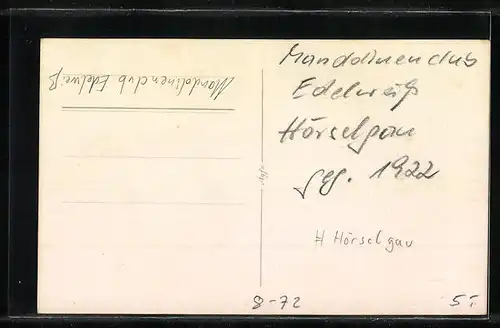 Mandolinenclub Edelweiß
Manddinenclub
Edelweiß
Hörselgau
geg. 1922
# Hörselgau
8-72
5,-